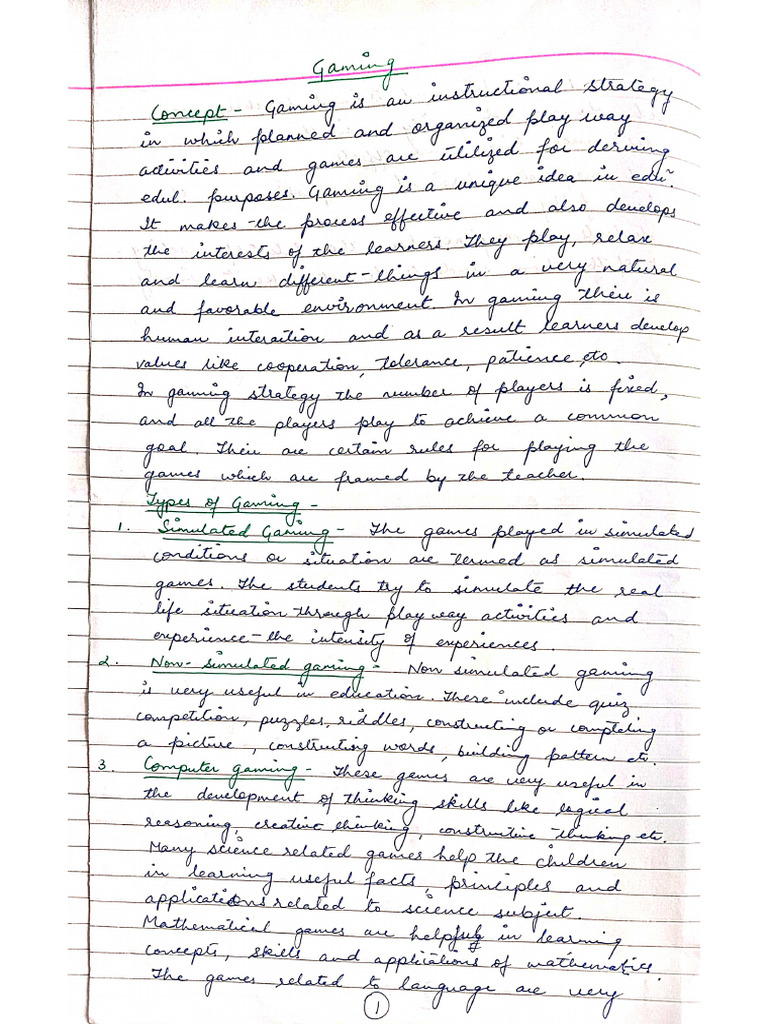 Gaming
Concept - Gaming is an instructional strategy
in which planned and organized play way
activities and games are utilized for deriving
edul. purposes. Gaming is a unique idea in edun.
It makes the process effective and also develops
the interests of the learners. They play, relax
and learn different things in a very natural
and favorable environment. In gaming their is
human interaition and as a result learners develop
values like cooperation, tolerance, patience, etc.
In gaming strategy the number of players is fixed,
and all the players play to achieve a common
goal. Their are certain rules for playing the
games which are framed by the teacher.
Types of Gaming -
1. Simulated Gaming - The games played in simulated
conditions or situation are termed as simulated
games. The students try to simulate the real
life situation through play way activities and
experience the intensity of experiences.
2. Non-simulated gaming - Non simulated gaming
is very useful in education. These include quiz
competition, puzzles, riddles, constructing or completing
a picture, constructing words, building pattern etc.
3. Computer gaming - These games are very useful in
the development of thinking skills like logical
reasoning, creative thinking, constructive thinking etc.
Many science related games help the children
in learning useful facts, principles and
applications related to science subject.
Mathematical games are helpful in learning
concepts, skills and applications of mathematics.
The games related to language are very
1